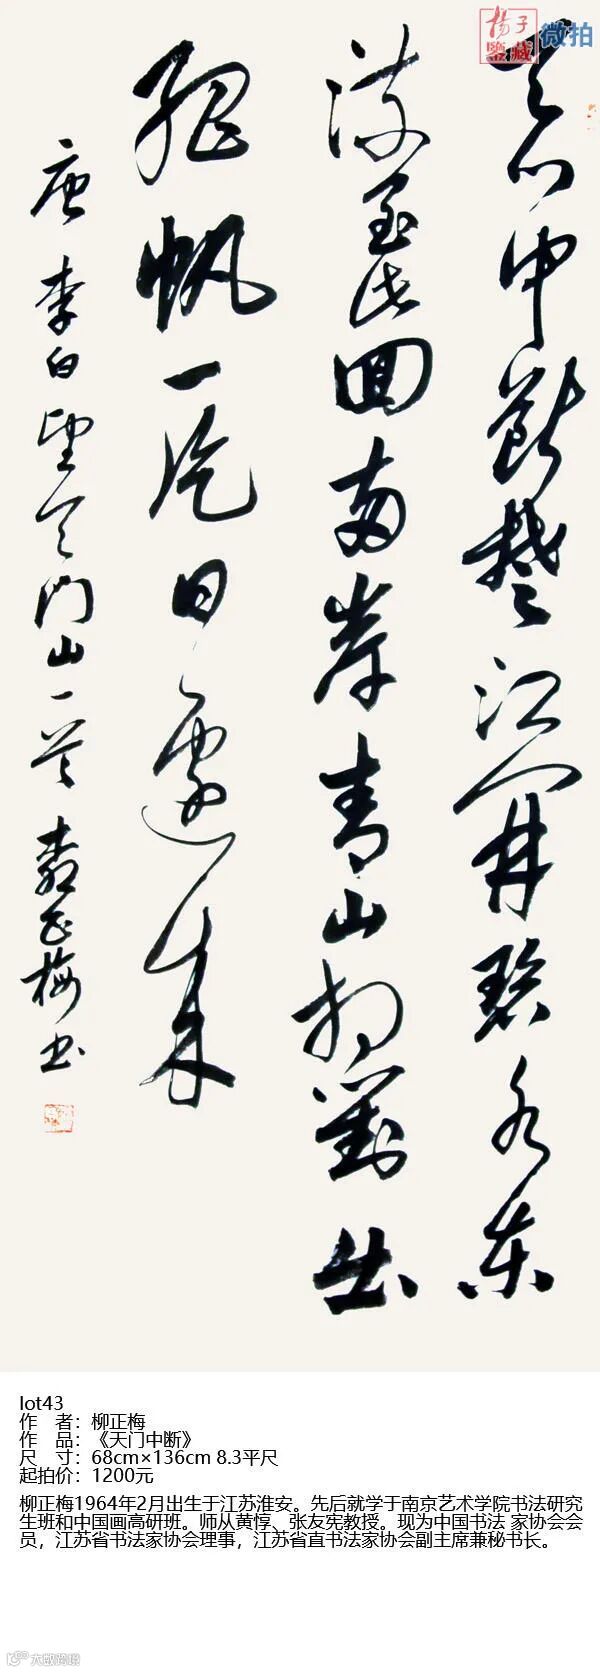 揚子
鑒藏
微拍
天門中斷楚江開碧水東
流至此回兩岸青山相對出
孤帆一片日邊來
唐李白望天門山一首 柳正梅書
lot43
作 者：柳正梅
作 品：《天门中断》
尺 寸：68cm×136cm 8.3平尺
起拍价：1200元
柳正梅1964年2月出生于江苏淮安。先后就学于南京艺术学院书法研究
生班和中国画高研班。师从黄惇、张友宪教授。现为中国书法 家协会会
员，江苏省书法家协会理事，江苏省直书法家协会副主席兼秘书长。